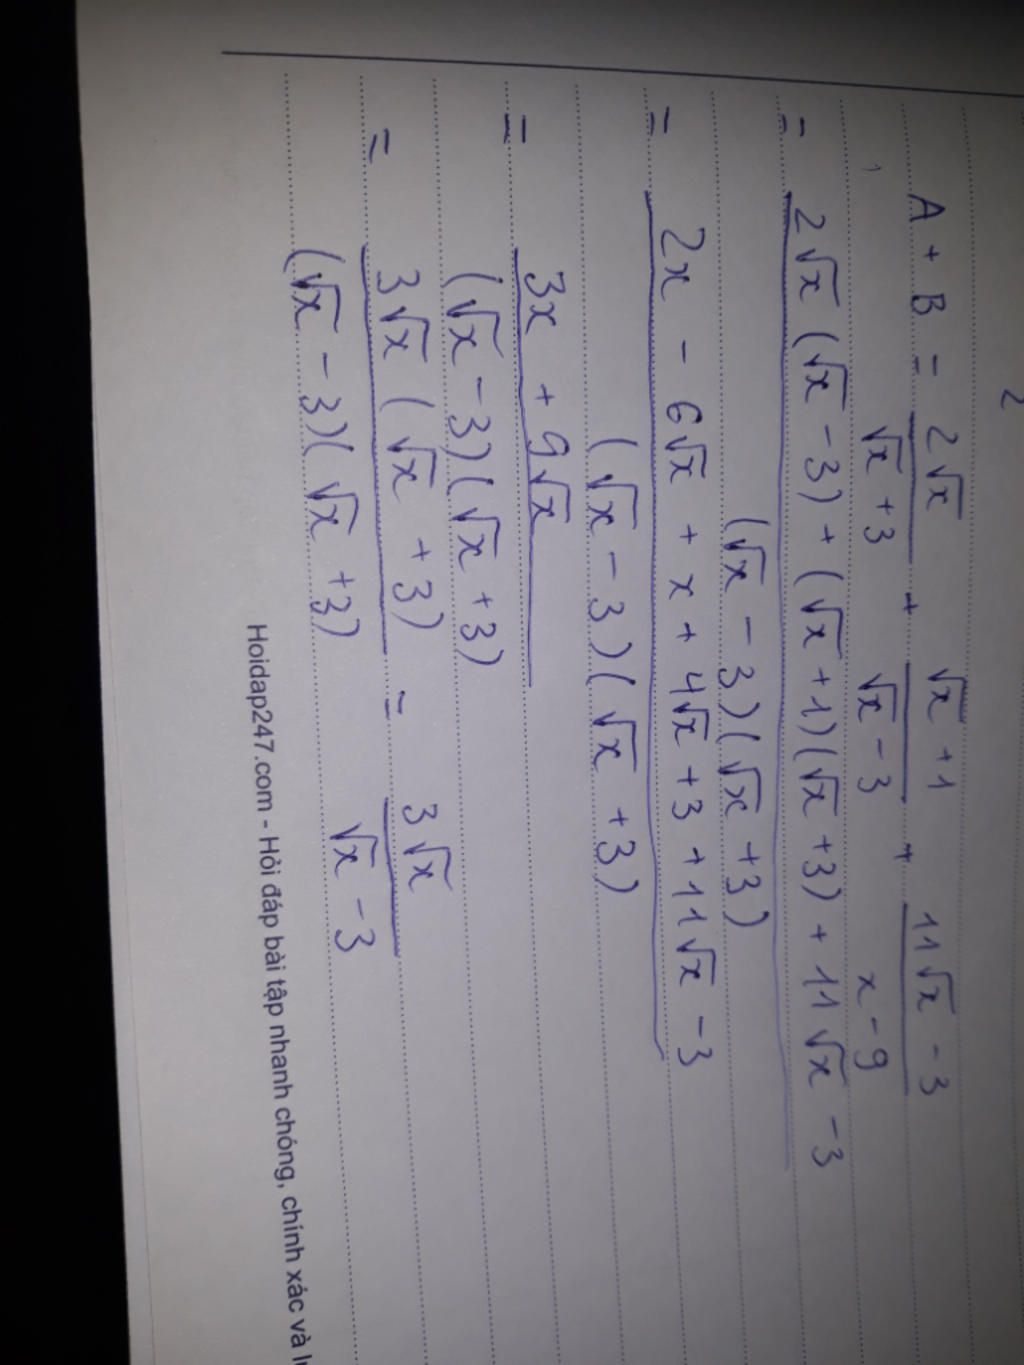 2
A + B = 2√x / √x + 3 + √x + 1 / √x - 3 + 11√x - 3 / x - 9
= 2√x (√x - 3) + (√x + 1)(√x + 3) + 11√x - 3
(√x - 3)(√x + 3)
= 2x - 6√x + x + 4√x + 3 + 11√x - 3
(√x - 3)(√x + 3)
= 3x + 9√x
(√x - 3)(√x + 3)
= 3√x (√x + 3) / (√x - 3)(√x + 3) = 3√x / √x - 3
Hoidap247.com - Hỏi đáp bài tập nhanh chóng, chính xác và